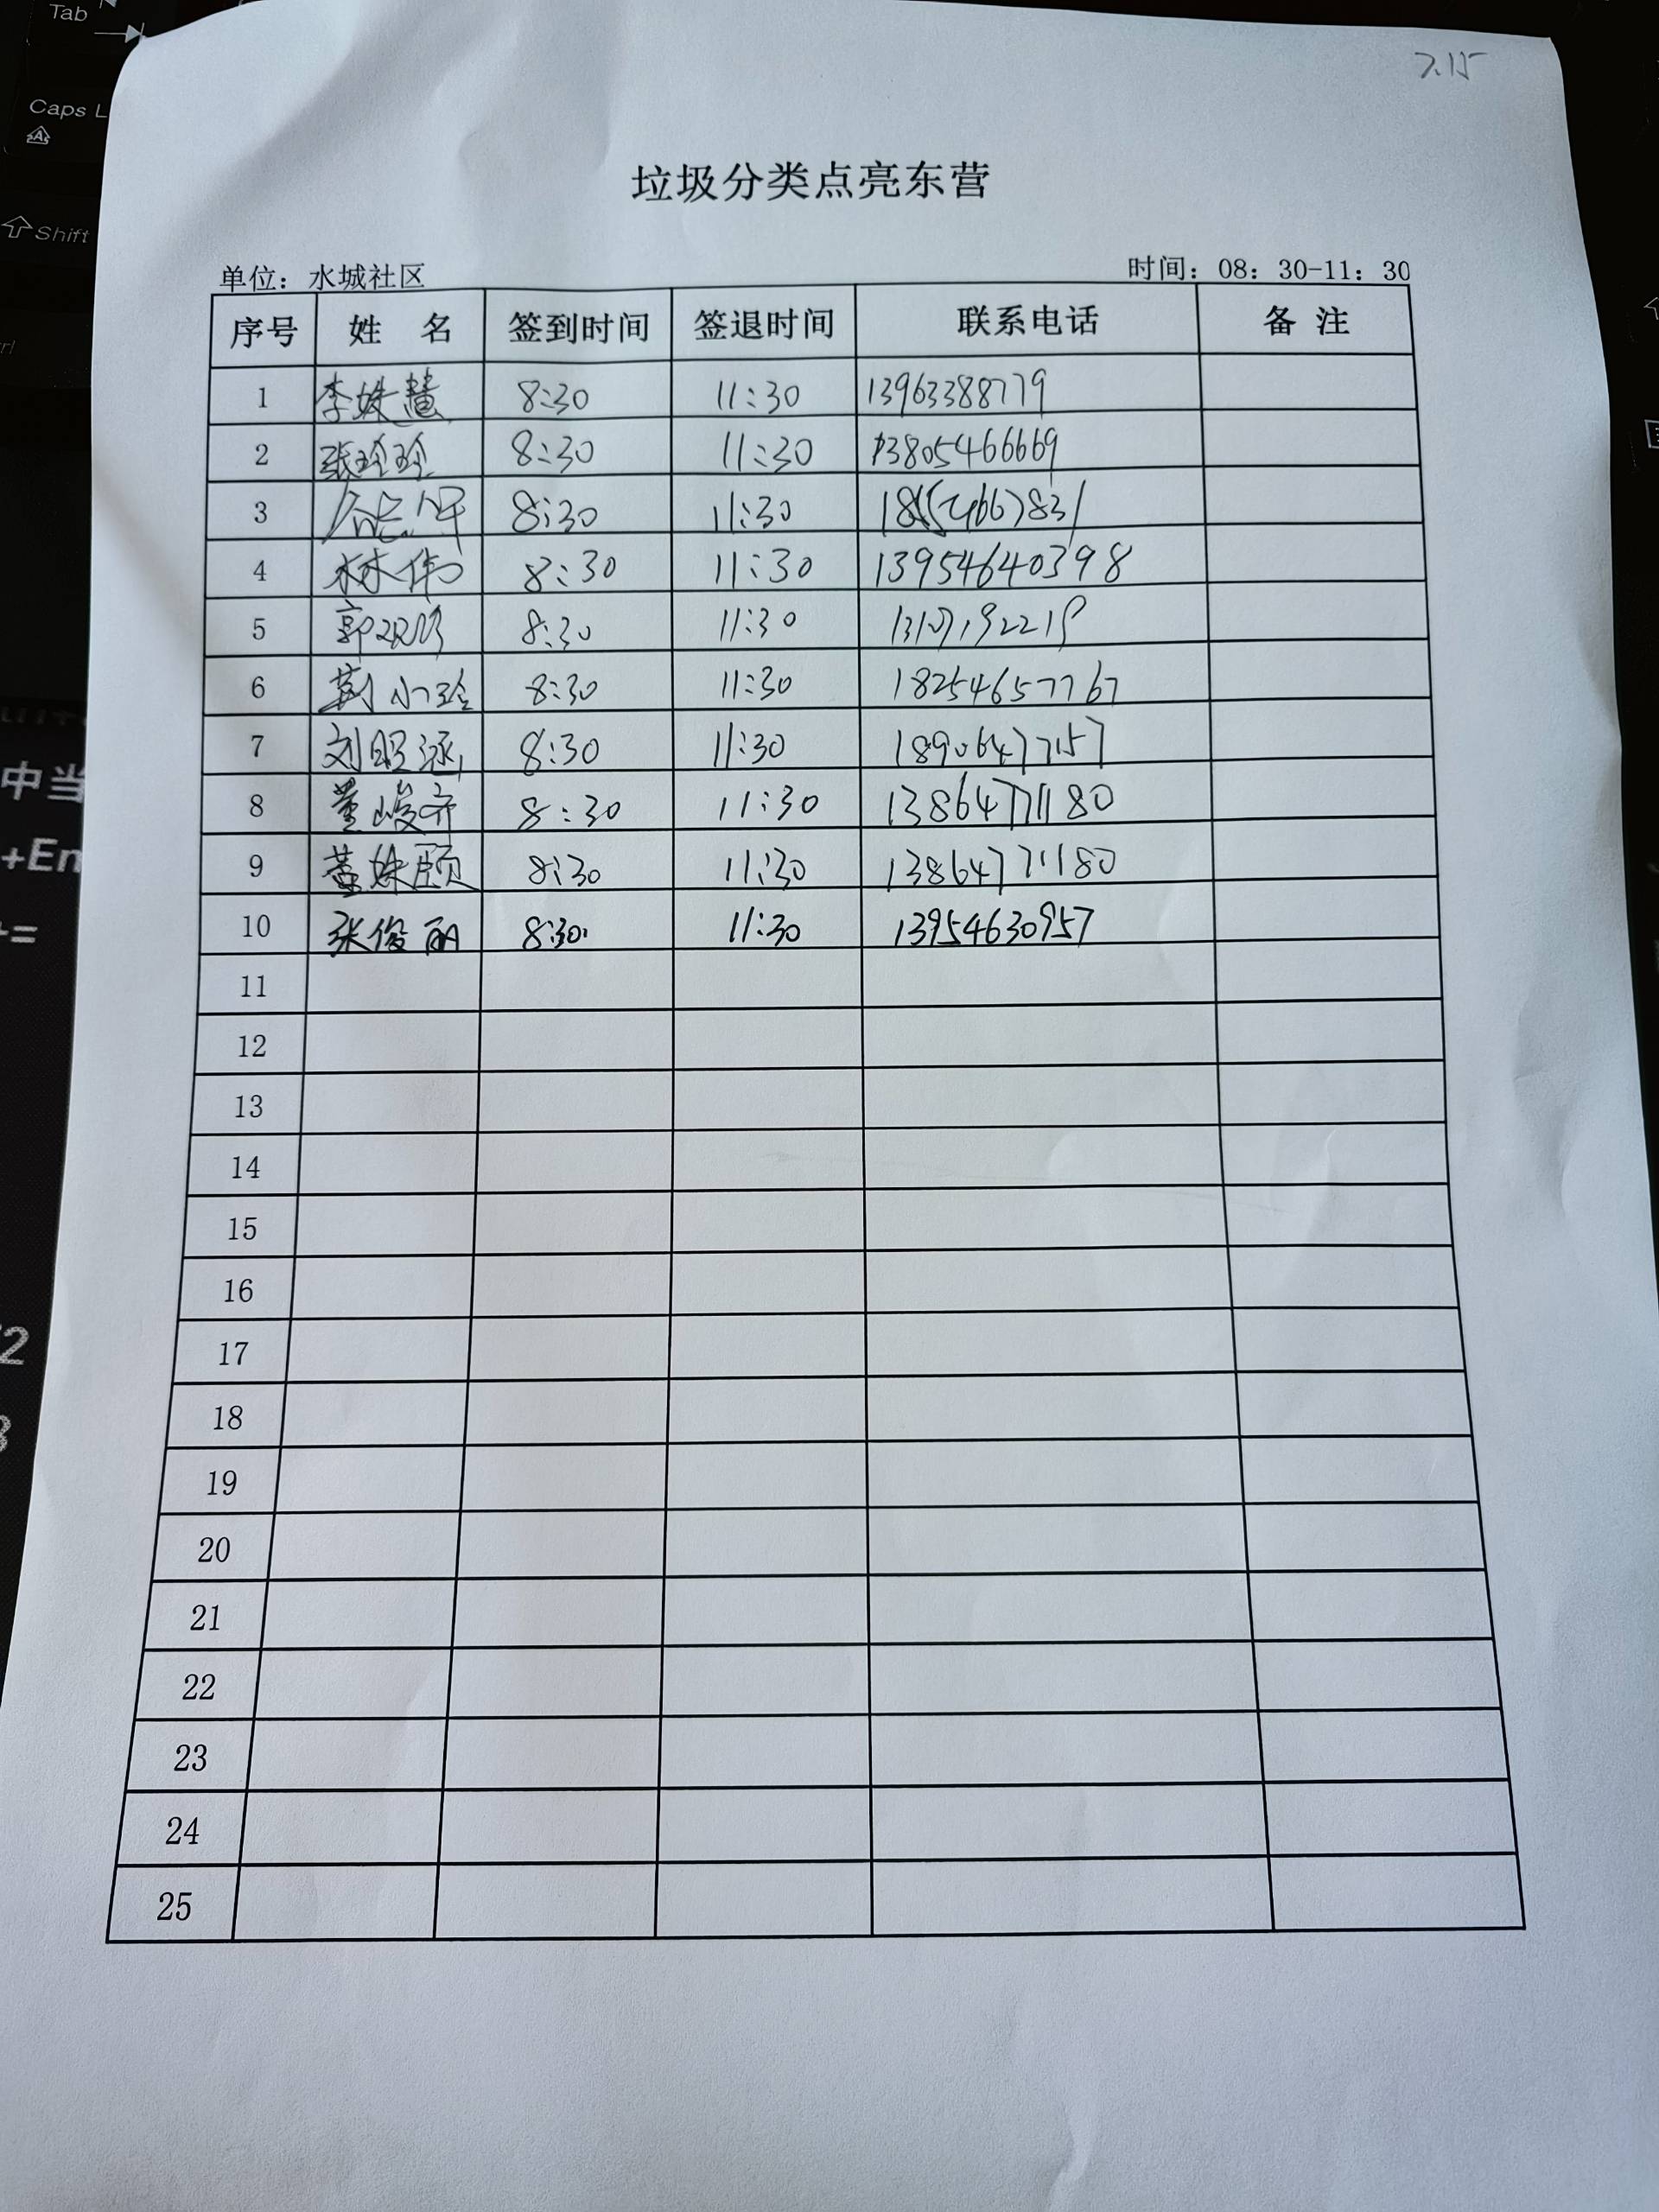 Tab
Caps L
Shift
中当
+En
7.15
垃圾分类点亮东营
单位：水城社区 时间：08：30-11：30
序号 姓 名 签到时间 签退时间 联系电话 备 注
1 李姝慧 8:30 11:30 13963388779
2 张玲玲 8:30 11:30 13805466669
3 8:30 11:30
4 林伟 8:30 11:30 13954640398
5 8:30 11:30
6 荆小玲 8:30 11:30 18254657767
7 刘明涵 8:30 11:30 18906477157
8 董峻齐 8:30 11:30 13864771180
9 董姝颐 8:30 11:30 13864771180
10 张俊丽 8:30 11:30 13954630957
11
12
13
14
15
16
17
18
19
20
21
22
23
24
25